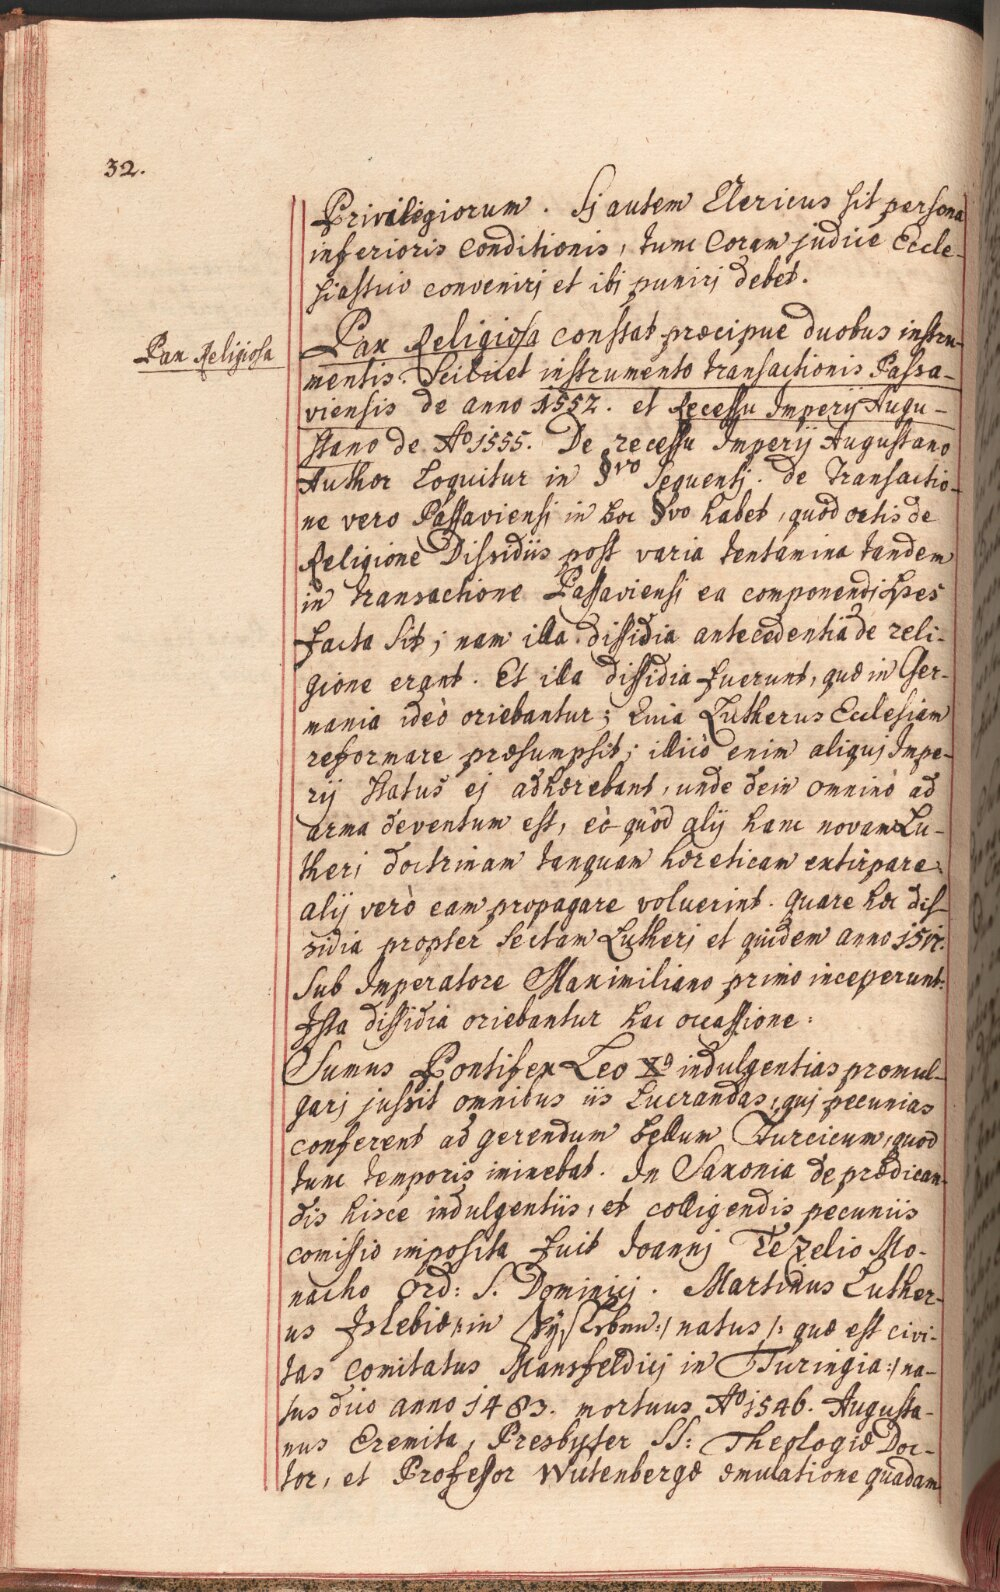 32.
Privilegiorum. Sj autem Clericus sit persona
inferioris conditionis, tunc Coram judice Eccle-
siastico convenirj et ibj punirj debet.
Pax Religiosa
Pax Religiosa constat præcipue duobus instru-
mentis. Scilicet instrumento transactionis Passa-
viensis de anno 1552. et Recessu Imperij Augu-
stano de Aº 1555. De recessu Imperij Augustano
Author Loquitur in §vo Sequentj. de Transactio-
ne vero Passaviensi in hoc §vo habet, quòd ortis de
Religione Dissidiis post varia tentamina tandem
in transactione Passaviensi ea componendi spes
facta sit; nam illa dissidia antecedentia de reli-
gione erant. Et illa dissidia fuerunt, quæ in Ger-
mania ideò oriebantur; Quia Lutherus Ecclesiam
reformare præsumpsit; illicò enim aliquj Impe-
rij Status ej adhærebant, unde dein omninò ad
arma deventum est, eò quòd alij hanc novam Lu-
therj doctrinam tanquam hæreticam extirpare,
alij verò eam propagare voluerint. Quare hæc dis-
sidia propter Sectam Lutherj et quidem anno 1517.
Sub Imperatore Maximiliano primo inceperunt.
Ista dissidia oriebantur hac occassione:
Sumus Pontifex Leo X9 indulgentias promul-
garj jussit omnibus iis Lucrandas, quj pecunias
conferent ad gerendum bellum Turcicum, quod
tunc temporis iminebat. In Saxonia de prædican-
dis hisce indulgentiis, et colligendis pecuniis
comissio imposita fuit Joannj Tezelio Mo-
nacho Ord: S. Dominicj. Martinus Luther-
us Islebiæ /: in Eysleben :/ natus /: quæ est civi-
tas Comitatus Mansfeldicj in Turingia :/ na-
tus dico anno 1483. mortuus Aº 1546. Augusta-
nus Eremita, Presbyter SS: Theologiæ Doc-
tor, et Professor Wittenbergæ æmulatione quadam